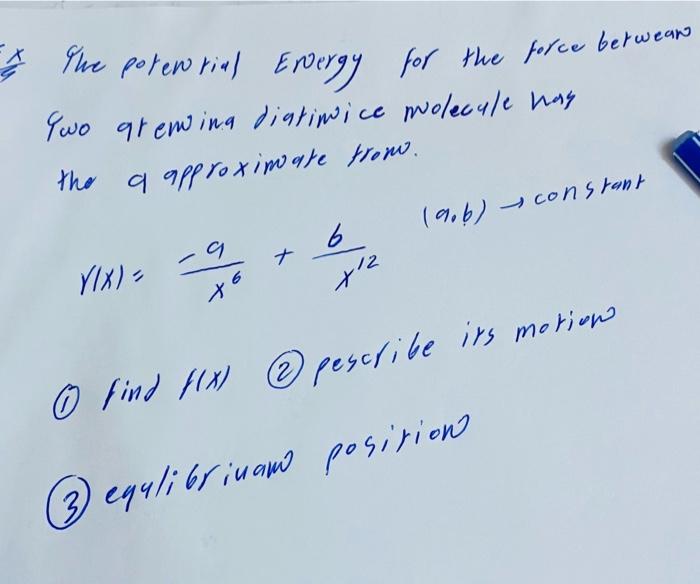 The potential Energy for the force between
Two atem in a diatimice molecule has
the a approximate from.
V(x) = -a/x^6 + b/x^12 (a,b) → constant
① find f(x) ② Describe its motion
③ equlibriuam position